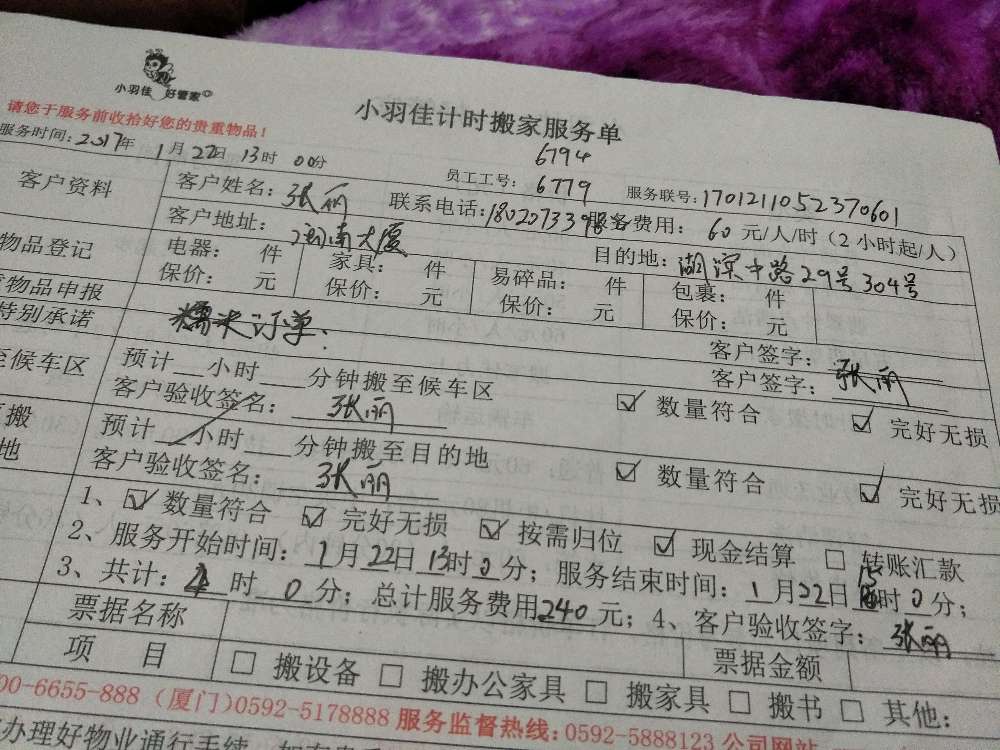 小羽佳 好管家
小羽佳计时搬家服务单
请您于服务前收拾好您的贵重物品！
6794
服务时间：2017年 1月22日 13时 00分
员工工号： 6779 服务联号：1701211052370601
客户资料 客户姓名：张丽 联系电话： 服务费用： 60 元/人/时（2小时起/人）
客户地址： 湖南大厦 目的地：湖滨中路29号304号
物品登记 电器： 件 家具： 件 易碎品： 件 包裹： 件
保价： 元 保价： 元 保价： 元 保价： 元
物品申报 客户签字：
特别承诺 糯米订单. 客户签字：张丽
至候车区 预计 小时 分钟搬至候车区
客户验收签名： 张丽 ☑ 数量符合 ☑ 完好无损
搬 预计 小时 分钟搬至目的地
地 客户验收签名： 张丽 ☑ 数量符合 ☑ 完好无损
1、☑ 数量符合 ☑ 完好无损 ☑ 按需归位 ☑ 现金结算 □ 转账汇款
2、服务开始时间：1月22日13时0分；服务结束时间：1月22日15时0分；
3、共计： 时 0 分；总计服务费用240元；4、客户验收签字：张丽
票据名称 票据金额
项 目 □ 搬设备 □ 搬办公家具 □ 搬家具 □ 搬书 □ 其他：
00-6655-888（厦门）0592-5178888 服务监督热线：0592-5888123 公司网站
办理好物业通行手续，如有贵重